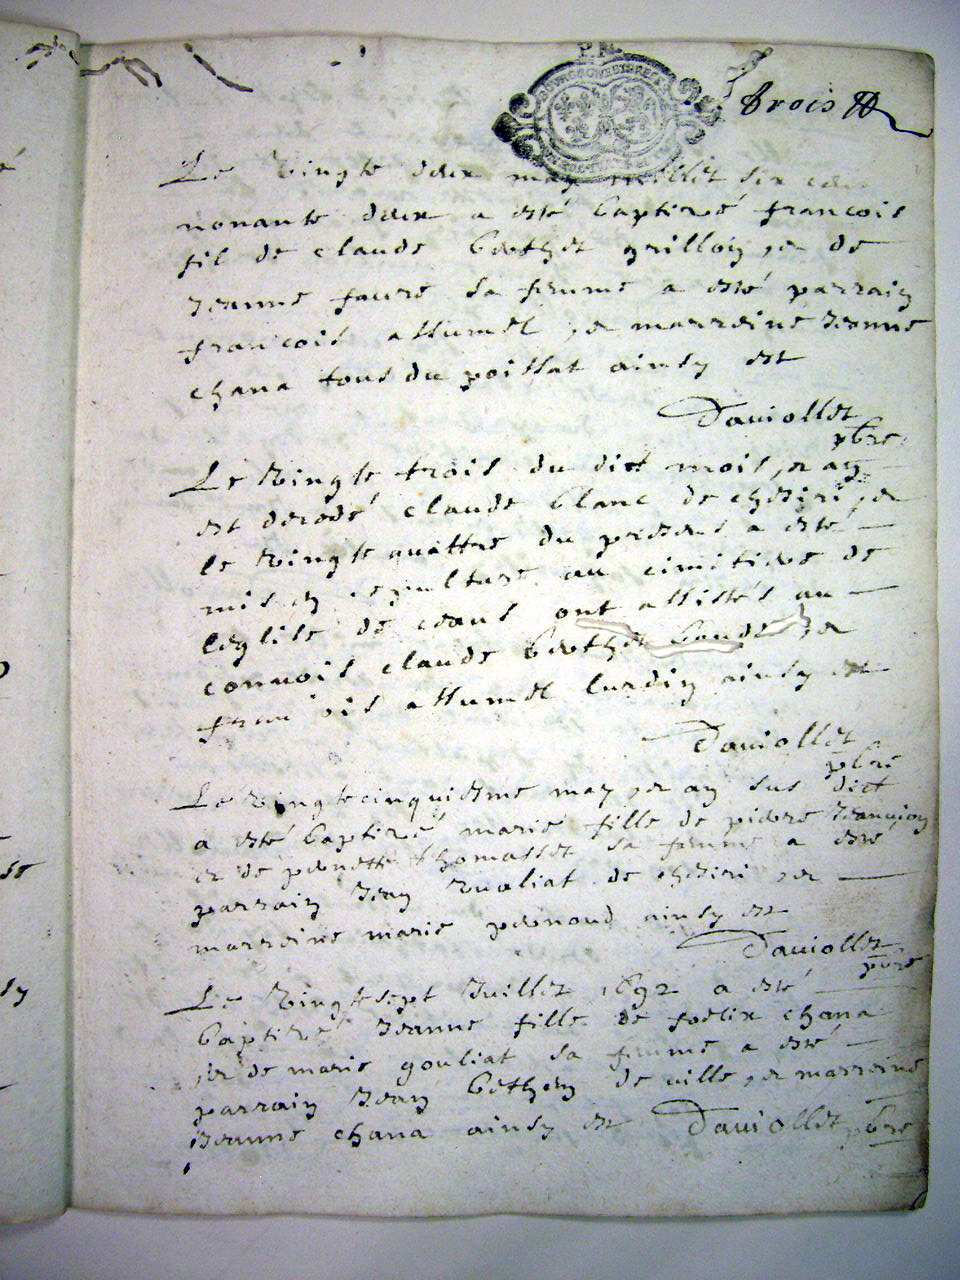 trois
Le vingte deux may millet six cen
nonante deux a esté baptizé francois
fil de claude berthet grillon, et de
Jeanne favre sa femme a esté parrain
francois allumel, et marreine Jeanne
chana tous du poissat ainsy est
Daviollet
pbre
Le vingte trois du dict mois, et an
est decedé claude blanc de cheziri, et
le vingte quattre du present a esté
mis en sepulture au cimitiere de
leglise de ceans ont assistés au
convois claude berthet et
francois allumel ainsy est
Daviollet
pbre
Le vingtecinquiesme may, et an sus dict
a esté baptizé marie fille de pierre Jeanvion
et de pernette thomasset sa femme a esté
parrain Jean de cheziri, et
marreine marie pernoud ainsy est
Daviollet
pbre
Le vingtesept Juillet 1692 a esté
baptizé Jeanne fille de foelix chana
et de marie gouliat sa femme a esté
parrain Jean de ville, et marreine
Jeanne chana ainsy est Daviollet pbre